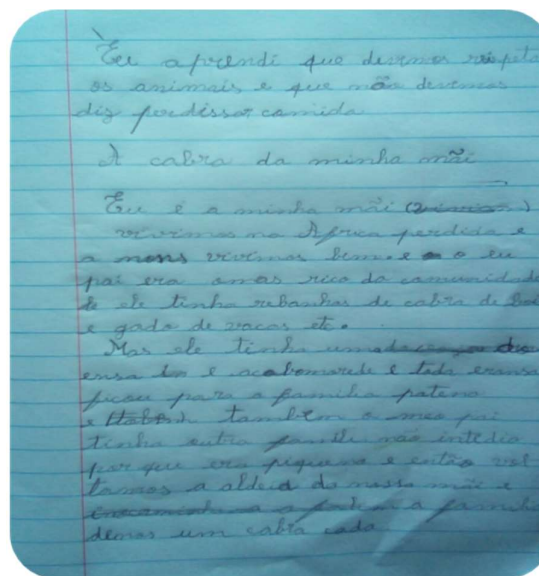 Eu aprendi que devemos respeita
os animais e que não devemos
diz perdissar camida
A cabra da minha mãi
Eu é a minha mãi
vivimos na África perdida e
a noss vivimos bem e o eu
pai era o mas rico da comunidade
e ele tinha rebanhas de cabra de boi
e gado de vacas etc.
Mas ele tinha uma
e acabo e toda
ficou para a familia patena
e também o meu pai
tinha outra não intedia
por que era piquena e então vol
tamos a aldeia da nossa mãe e
a famili
demos um cabra cada